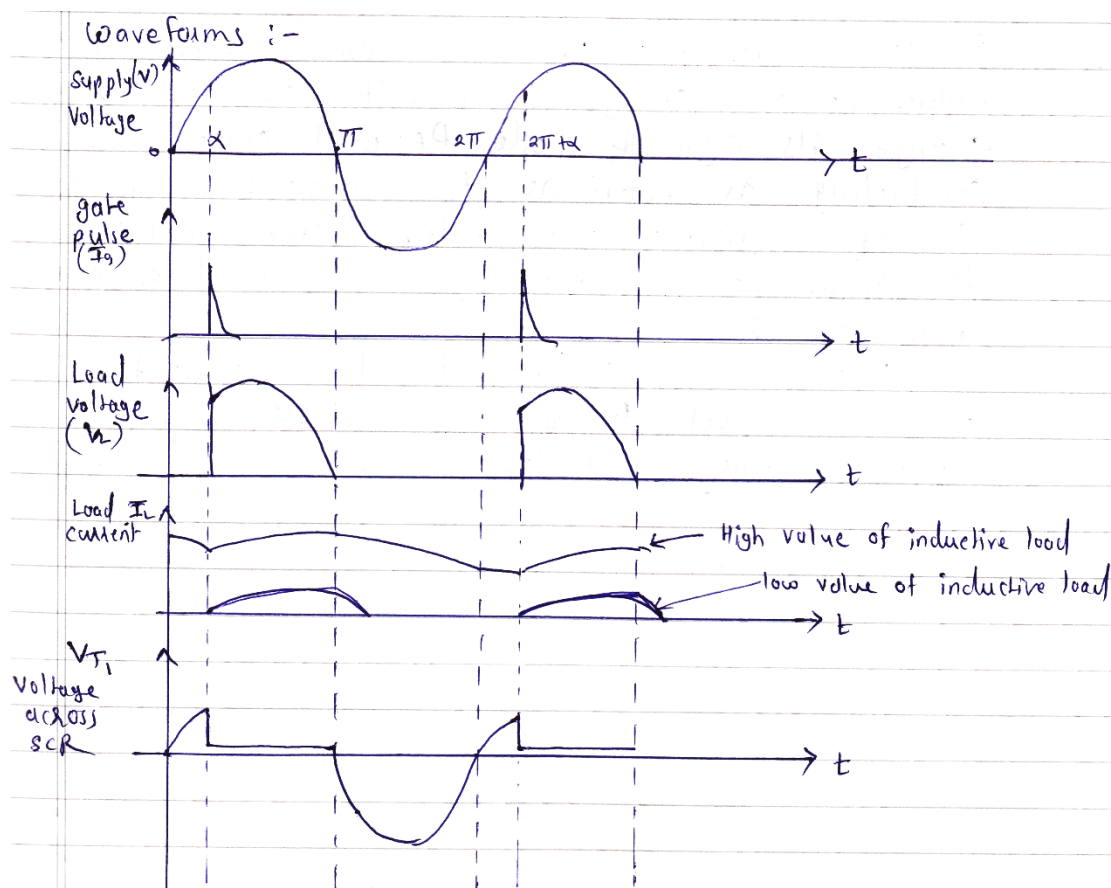 Waveforms :-
Supply(V)
Voltage
0
α
π
2π
2π+α
t
gate
pulse
(Ig)
t
Load
voltage
(VL)
t
Load IL
current
High value of inductive load
low value of inductive load
t
VT1
Voltage
across
SCR
t